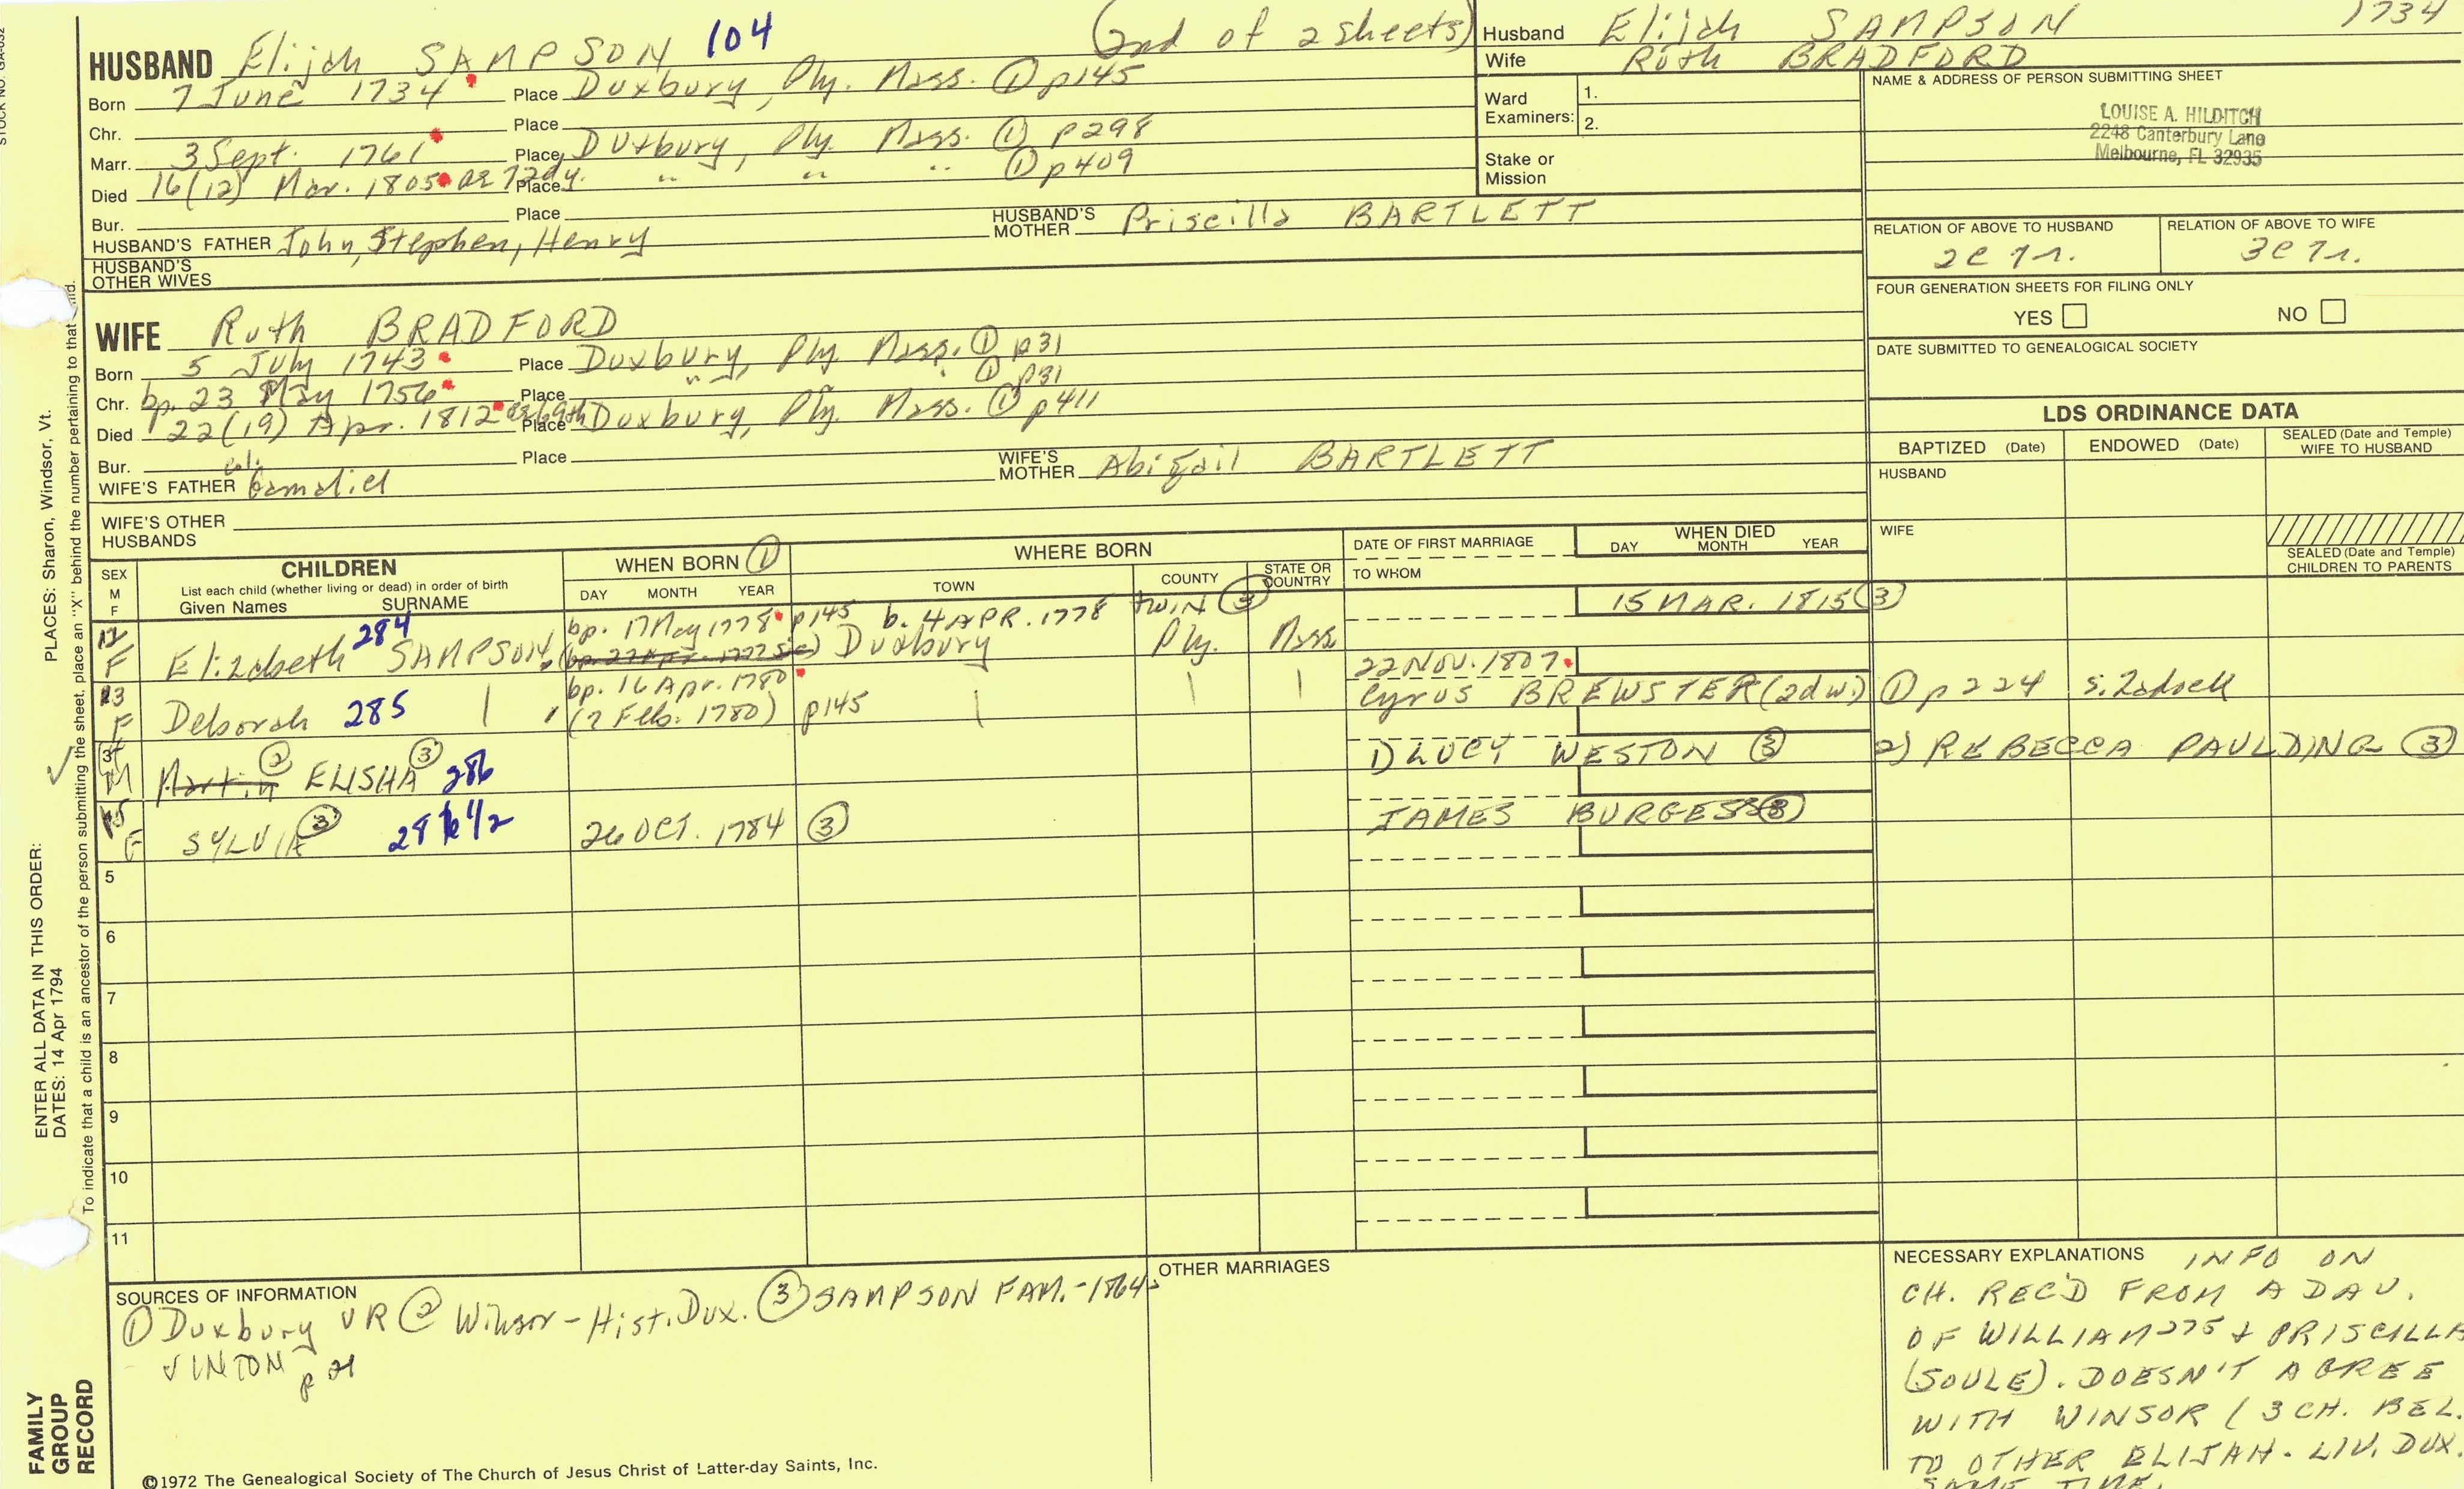 STOCK NO. GA-032
HUSBAND Elijah SAMPSON 104 (2nd of 2 sheets)
Born 7 June 1734 Place Duxbury, Ply. Mass. ① p145
Chr. Place
Marr. 3 Sept. 1761 Place Duxbury, Ply. Mass. ① p298
Died 16(12) Mar. 1805 ae 72dy. Place " " " ① p409
Bur. Place
HUSBAND'S FATHER John, Stephen, Henry HUSBAND'S MOTHER Priscilla BARTLETT
HUSBAND'S OTHER WIVES
Husband Elijah SAMPSON 1734
Wife Ruth BRADFORD
Ward Examiners: 1.
2.
Stake or Mission
NAME & ADDRESS OF PERSON SUBMITTING SHEET
LOUISE A. HILDITCH
2248 Canterbury Lane
Melbourne, FL 32935
RELATION OF ABOVE TO HUSBAND RELATION OF ABOVE TO WIFE
2c7r. 3c7r.
FOUR GENERATION SHEETS FOR FILING ONLY
YES NO
DATE SUBMITTED TO GENEALOGICAL SOCIETY
WIFE Ruth BRADFORD
Born 5 July 1743 Place Duxbury, Ply. Mass. ① p31
Chr. bp. 23 May 1756 Place " " ① p31
Died 22(19) Apr. 1812 ae 69th Place Duxbury, Ply. Mass. ① p411
Bur. Place
WIFE'S FATHER Col. Gamaliel WIFE'S MOTHER Abigail BARTLETT
WIFE'S OTHER HUSBANDS
LDS ORDINANCE DATA
BAPTIZED (Date) ENDOWED (Date) SEALED (Date and Temple) WIFE TO HUSBAND
HUSBAND
WIFE
SEALED (Date and Temple) CHILDREN TO PARENTS
SEX M F
CHILDREN
List each child (whether living or dead) in order of birth
Given Names SURNAME
WHEN BORN ①
DAY MONTH YEAR
WHERE BORN
TOWN COUNTY STATE OR COUNTRY
DATE OF FIRST MARRIAGE
TO WHOM
WHEN DIED
DAY MONTH YEAR
12 F Elizabeth 284 SAMPSON bp. 17 May 1778 p145 b. 4 APR. 1778 TWIN ③ 15 MAR. 1815 ③
(bp. 27 Apr. 1777 sic) Duxbury Ply. Mass
13 F Deborah 285 bp. 16 Apr. 1780 (7 Feb. 1780) p145 22 NOV. 1807
Cyrus BREWSTER (2d w.) ① p224 s. Zadock
M Martin ② ELISHA ③ 286 1) LUCY WESTON ③ 2) REBECCA PAULDING ③
F SYLVIA ③ 286 1/2 26 OCT. 1784 ③ JAMES BURGESS ③
5
6
7
8
9
10
11
SOURCES OF INFORMATION
① Duxbury VR ② Winsor - Hist. Dux. ③ SAMPSON FAM. - 1864
VINTON p 21
OTHER MARRIAGES
NECESSARY EXPLANATIONS INFO ON
CH. REC'D FROM A DAU.
OF WILLIAM 275 + PRISCILLA
(SOULE). DOESN'T AGREE
WITH WINSOR (3 CH. BEL.
TO OTHER ELIJAH - LIV. DUX.
SAME TIME.
©1972 The Genealogical Society of The Church of Jesus Christ of Latter-day Saints, Inc.
FAMILY GROUP RECORD
ENTER ALL DATA IN THIS ORDER:
DATES: 14 Apr 1794
PLACES: Sharon, Windsor, Vt.
To indicate that a child is an ancestor of the person submitting the sheet, place an "X" behind the number pertaining to that child.